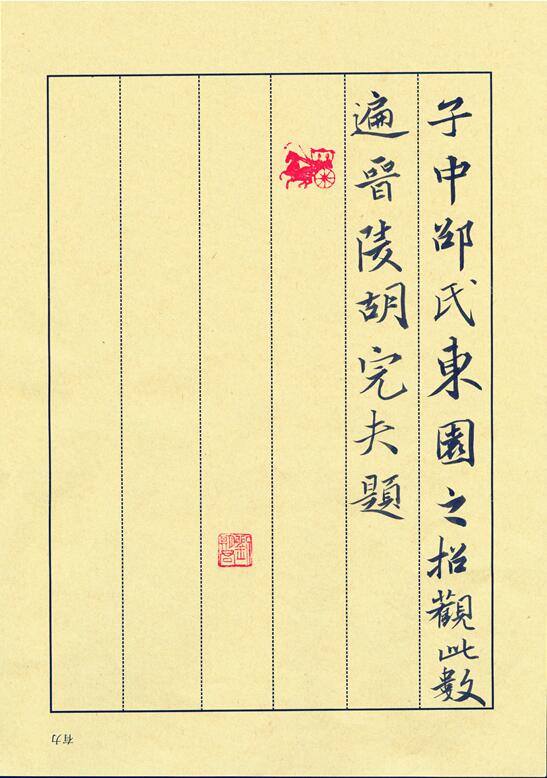 子中邵氏東園之招觀此數
遍晉陵胡完夫題
有力